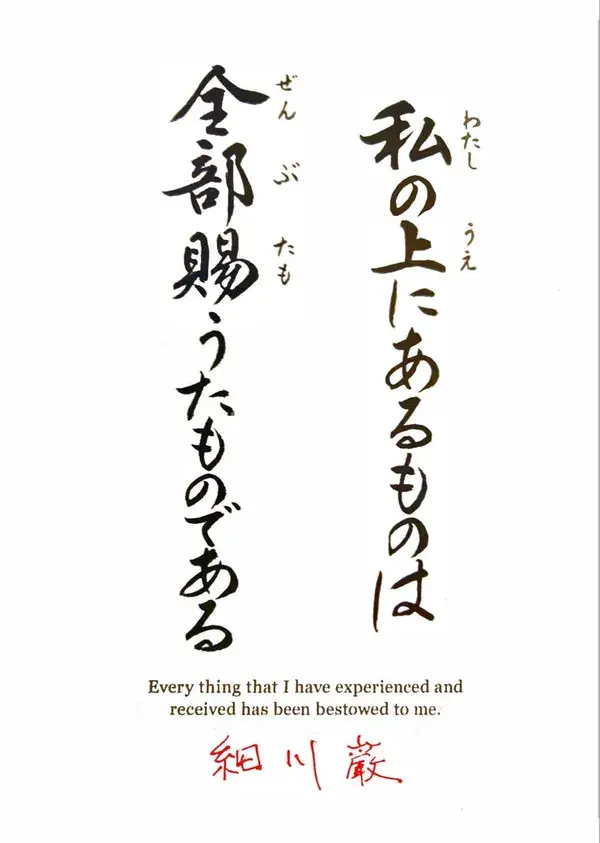 私の上にあるものは
わたし
うえ
全部賜うたものである
ぜん
ぶ
たも
Every thing that I have experienced and
received has been bestowed to me.
細川巌